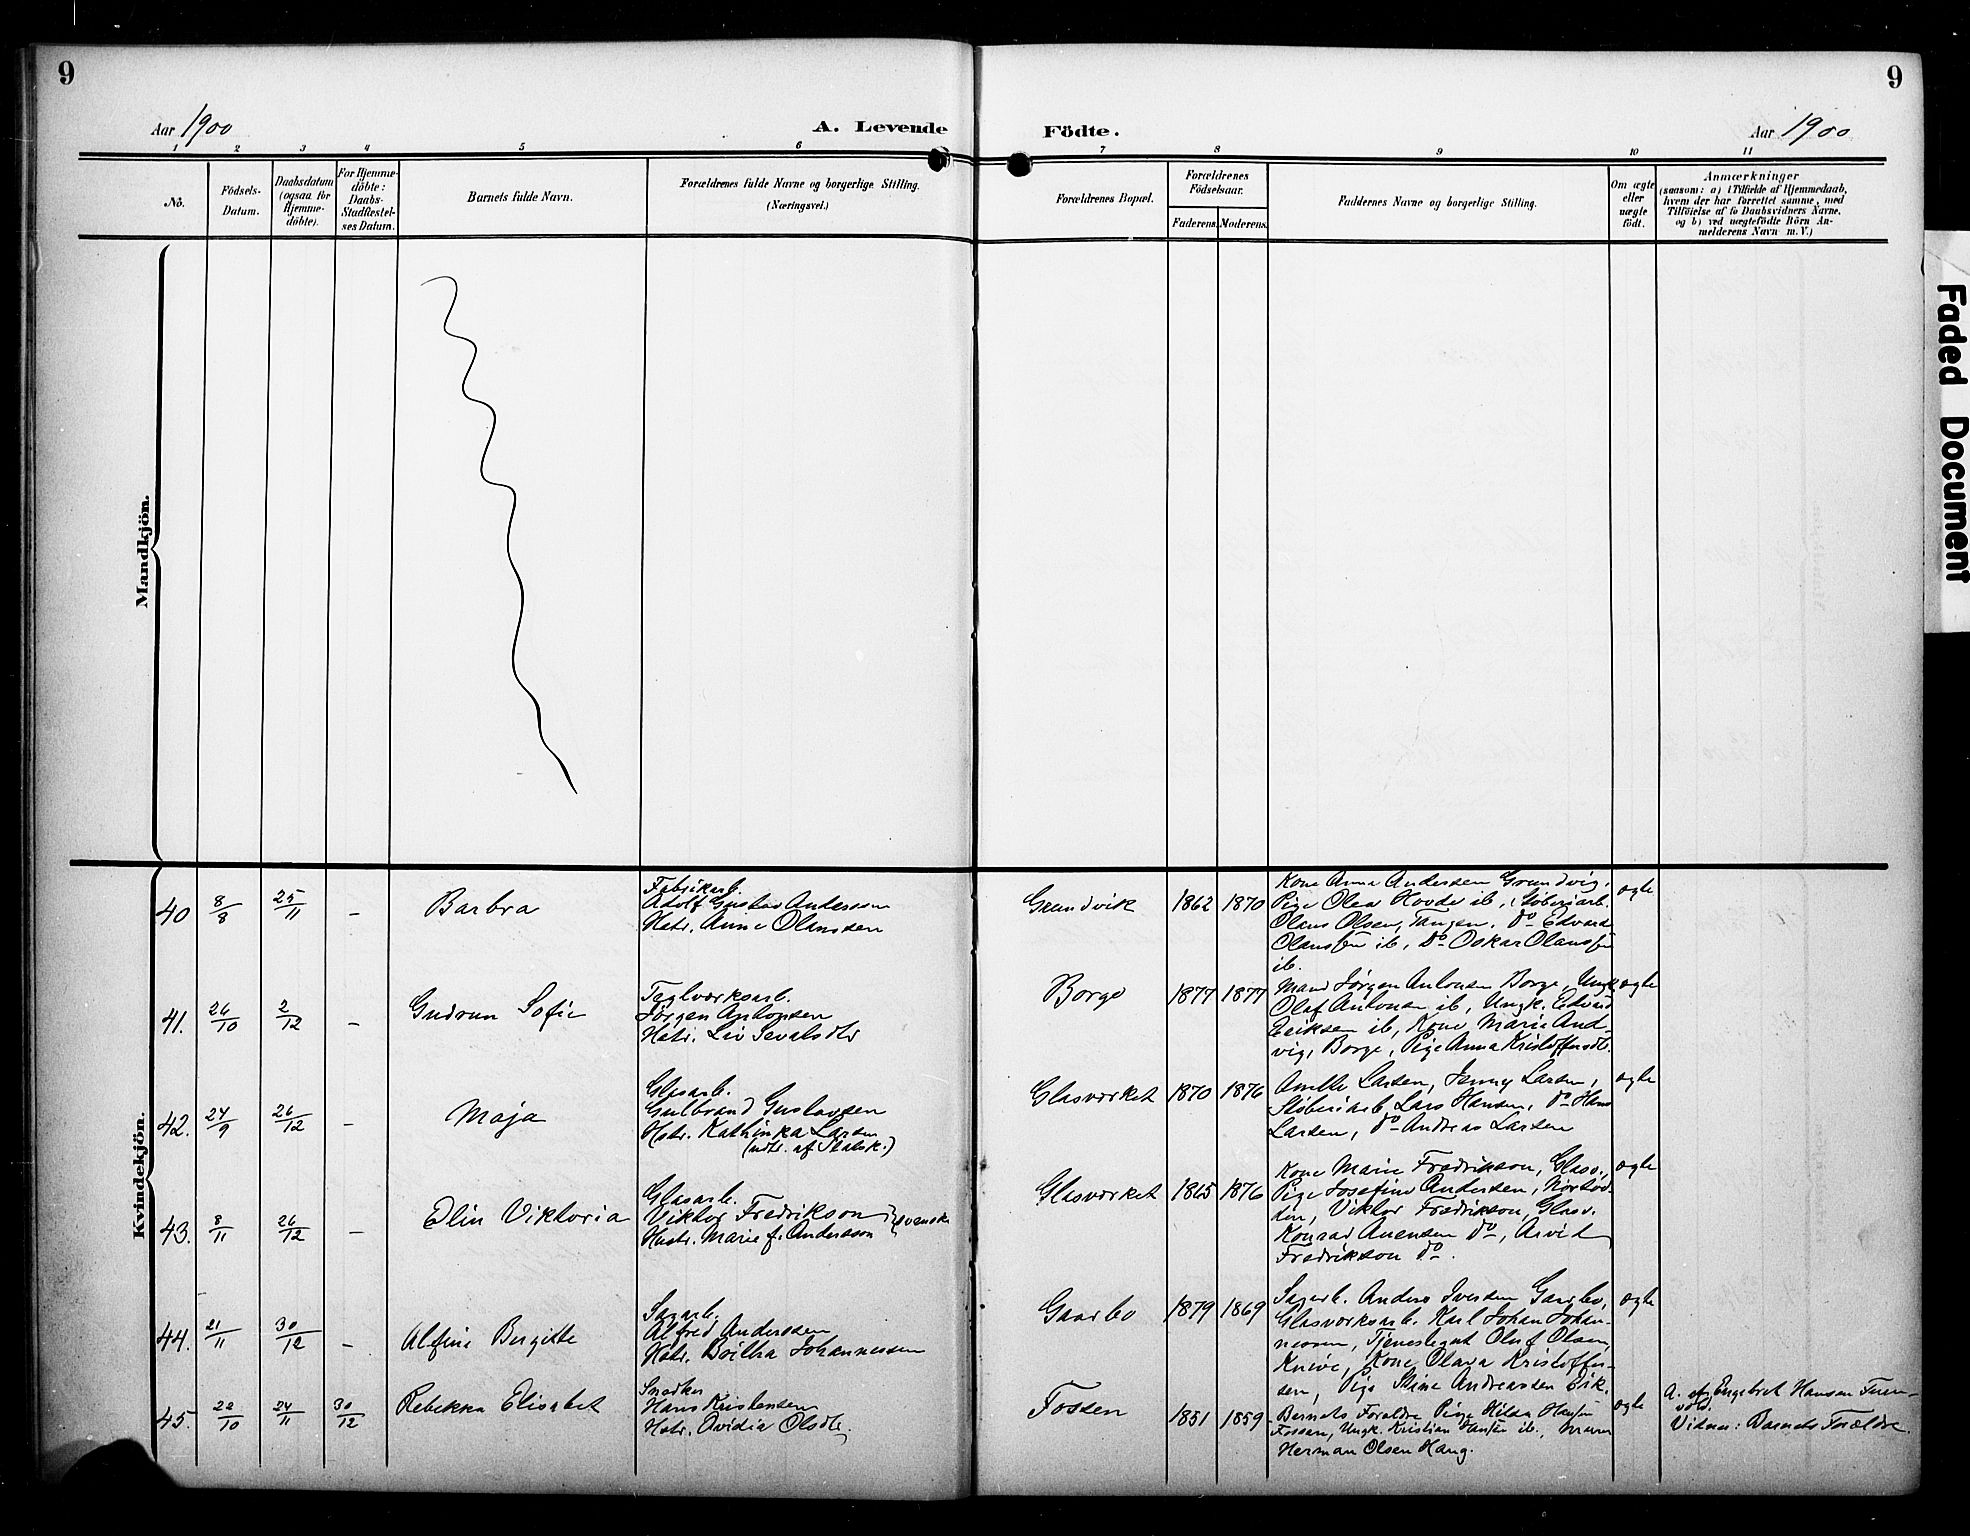 9
9
Aar 1900
A. Levende
Födte.
Aar 1900
1 2 3 4 5 6 7 8 9 10 11
No.
Födsels-
Datum.
Daabsdatum
(ogsaa for
Hjemme-
döbte).
For Hjemme-
döbte:
Daabs-
Stadfæstel-
ses Datum.
Barnets fulde Navn.
Forældrenes fulde Navne og borgerlige Stilling.
(Næringsvei.)
Forældrenes Bopæl.
Forældrenes
Födselsaar.
Faderens.
Moderens.
Faddernes Navne og borgerlige Stilling.
Om ægte
eller
uægte
födt.
Anmærkninger
(saasom: a) i Tilfælde af Hjemmedaab,
hvem der har forrettet samme, med
Tilföielse af to Daabsvidners Navne,
og b) ved uægtefödte Börn An-
melderens Navn m. V.)
Mandkjön.
Kvindekjön.
40
8/8
25/11
–
Barbra
Fabrikarb.
Adolf Gustav Anderssen
Hstr. Anne Olaussen
Grundvik
1862
1870
Kone Anna Anderssen Grundvig,
Pige Olea Hovde ib., Støberiarb.
Olaus Olsen, Tangen, Do Edvard
Olaussen ib, Do Oskar Olaussen
ib.
ægte
41.
26/10
2/12
–
Gudrun Sofie
Teglværksarb.
Jørgen Antonsen
Hstr. Liv Sevalsdtr
Borge
1877
1877
Mand Jørgen Antonsen Borge, Ungk
Olaf Antonsen ib, Ungk. Edvard
Eriksen ib, Kone Marie And-
vig, Borge, Pige Anna Kristoffersdt.
ægte
42.
24/9
26/12
–
Maja
Glasarb.
Gulbrand Gustavsen
Hstr. Kathinka Larsen
(udtr. af Statsk.)
Glasværket
1870
1876
Anette Larsen, Jenny Larsen,
Støberiarb Lars Hansen, Do Hans
Larsen, Do Andreas Larsen
ægte
43.
8/11
26/12
–
Elin Viktoria
Glasarb.
Viktor Fredrikson
Hustr. Marie f. Andersson
svenske
Glasværket
1865
1876
Kone Marie Fredrikson, Glasv.,
Pige Josefine Andersen,
den, Viktor Fredrikson, Glasv.
Konrad Do, Arvid
Fredrikson do.
ægte
44.
21/11
30/12
–
Alfine Birgitte
Sagarb.
Alfred Anderssen
Hstr. Johannessen
Gaarbo
1879
1869
Sagarb. Anders Iversen Gaarbo,
Glasværksarb. Karl Johan Johan-
nessen, Tjenestegut Oluf Olsen
Knive, Kone Olava Kristoffer-
sen, Pige Stine Andreassen Eik.
ægte
45
22/10
24/11
30/12
Rebekka Elisabet
Snedker
Hans Kristensen
Hstr. Avidia Olsdtr.
Fossen
1851
1859
Barnets Forældre Pige Hilda Hansen
Fossen, Ungk. Kristian Hansen ib.,
Herman Olsen Haug.
ægte
A. af Engebret Hansen
Vidner: Barnets Forældre.
Faded Document